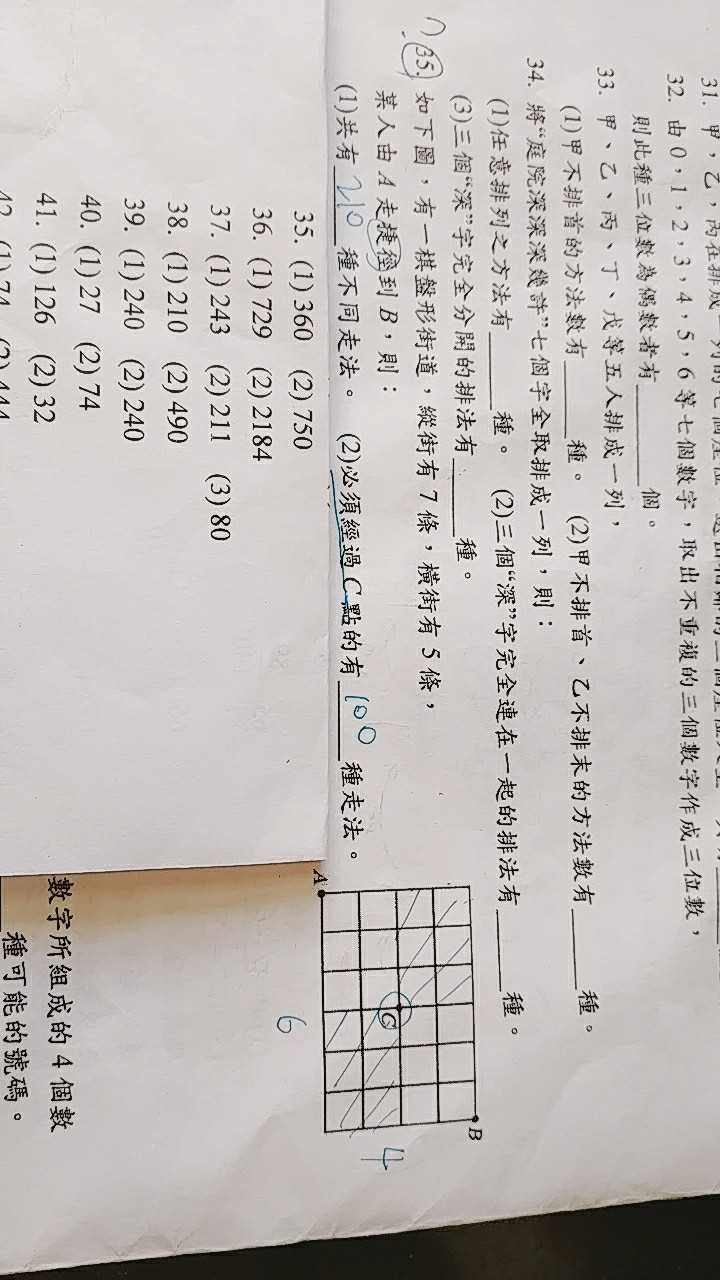 31. 甲，乙，丙在排成一列的七個座位
32. 由 0，1，2，3，4，5，6 等七個數字，取出不重複的三個數字作成三位數，
則此種三位數為偶數者有______個。
33. 甲、乙、丙、丁、戊等五人排成一列，
(1)甲不排首的方法數有______種。 (2)甲不排首、乙不排末的方法數有______種。
34. 將“庭院深深深幾許”七個字全取排成一列，則：
(1)任意排列之方法有______種。 (2)三個“深”字完全連在一起的排法有______種。
(3)三個“深”字完全分開的排法有______種。
35. 如下圖，有一棋盤形街道，縱街有 7 條，橫街有 5 條，
某人由 A 走捷徑到 B，則：
(1)共有 210 種不同走法。 (2)必須經過 C 點的有 100 種走法。
A
B
C
6
4
35. (1) 360 (2) 750
36. (1) 729 (2) 2184
37. (1) 243 (2) 211 (3) 80
38. (1) 210 (2) 490
39. (1) 240 (2) 240
40. (1) 27 (2) 74
41. (1) 126 (2) 32
42. (1) 74 (2) 444
數字所組成的 4 個數
種可能的號碼。